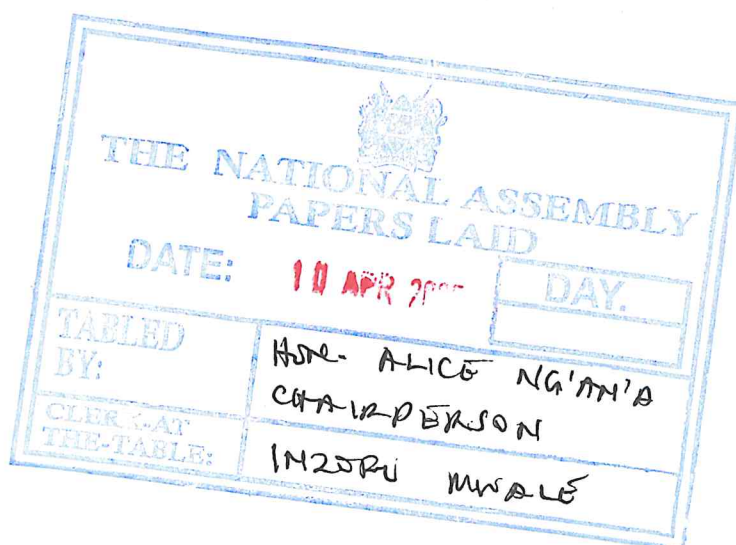 THE NATIONAL ASSEMBLY
PAPERS LAID
DATE: 10 APR
DAY.
TABLED
BY:
HON. ALICE NG'AN'A
CHAIRPERSON
CLERK-AT
THE-TABLE:
INZOFU MWALE